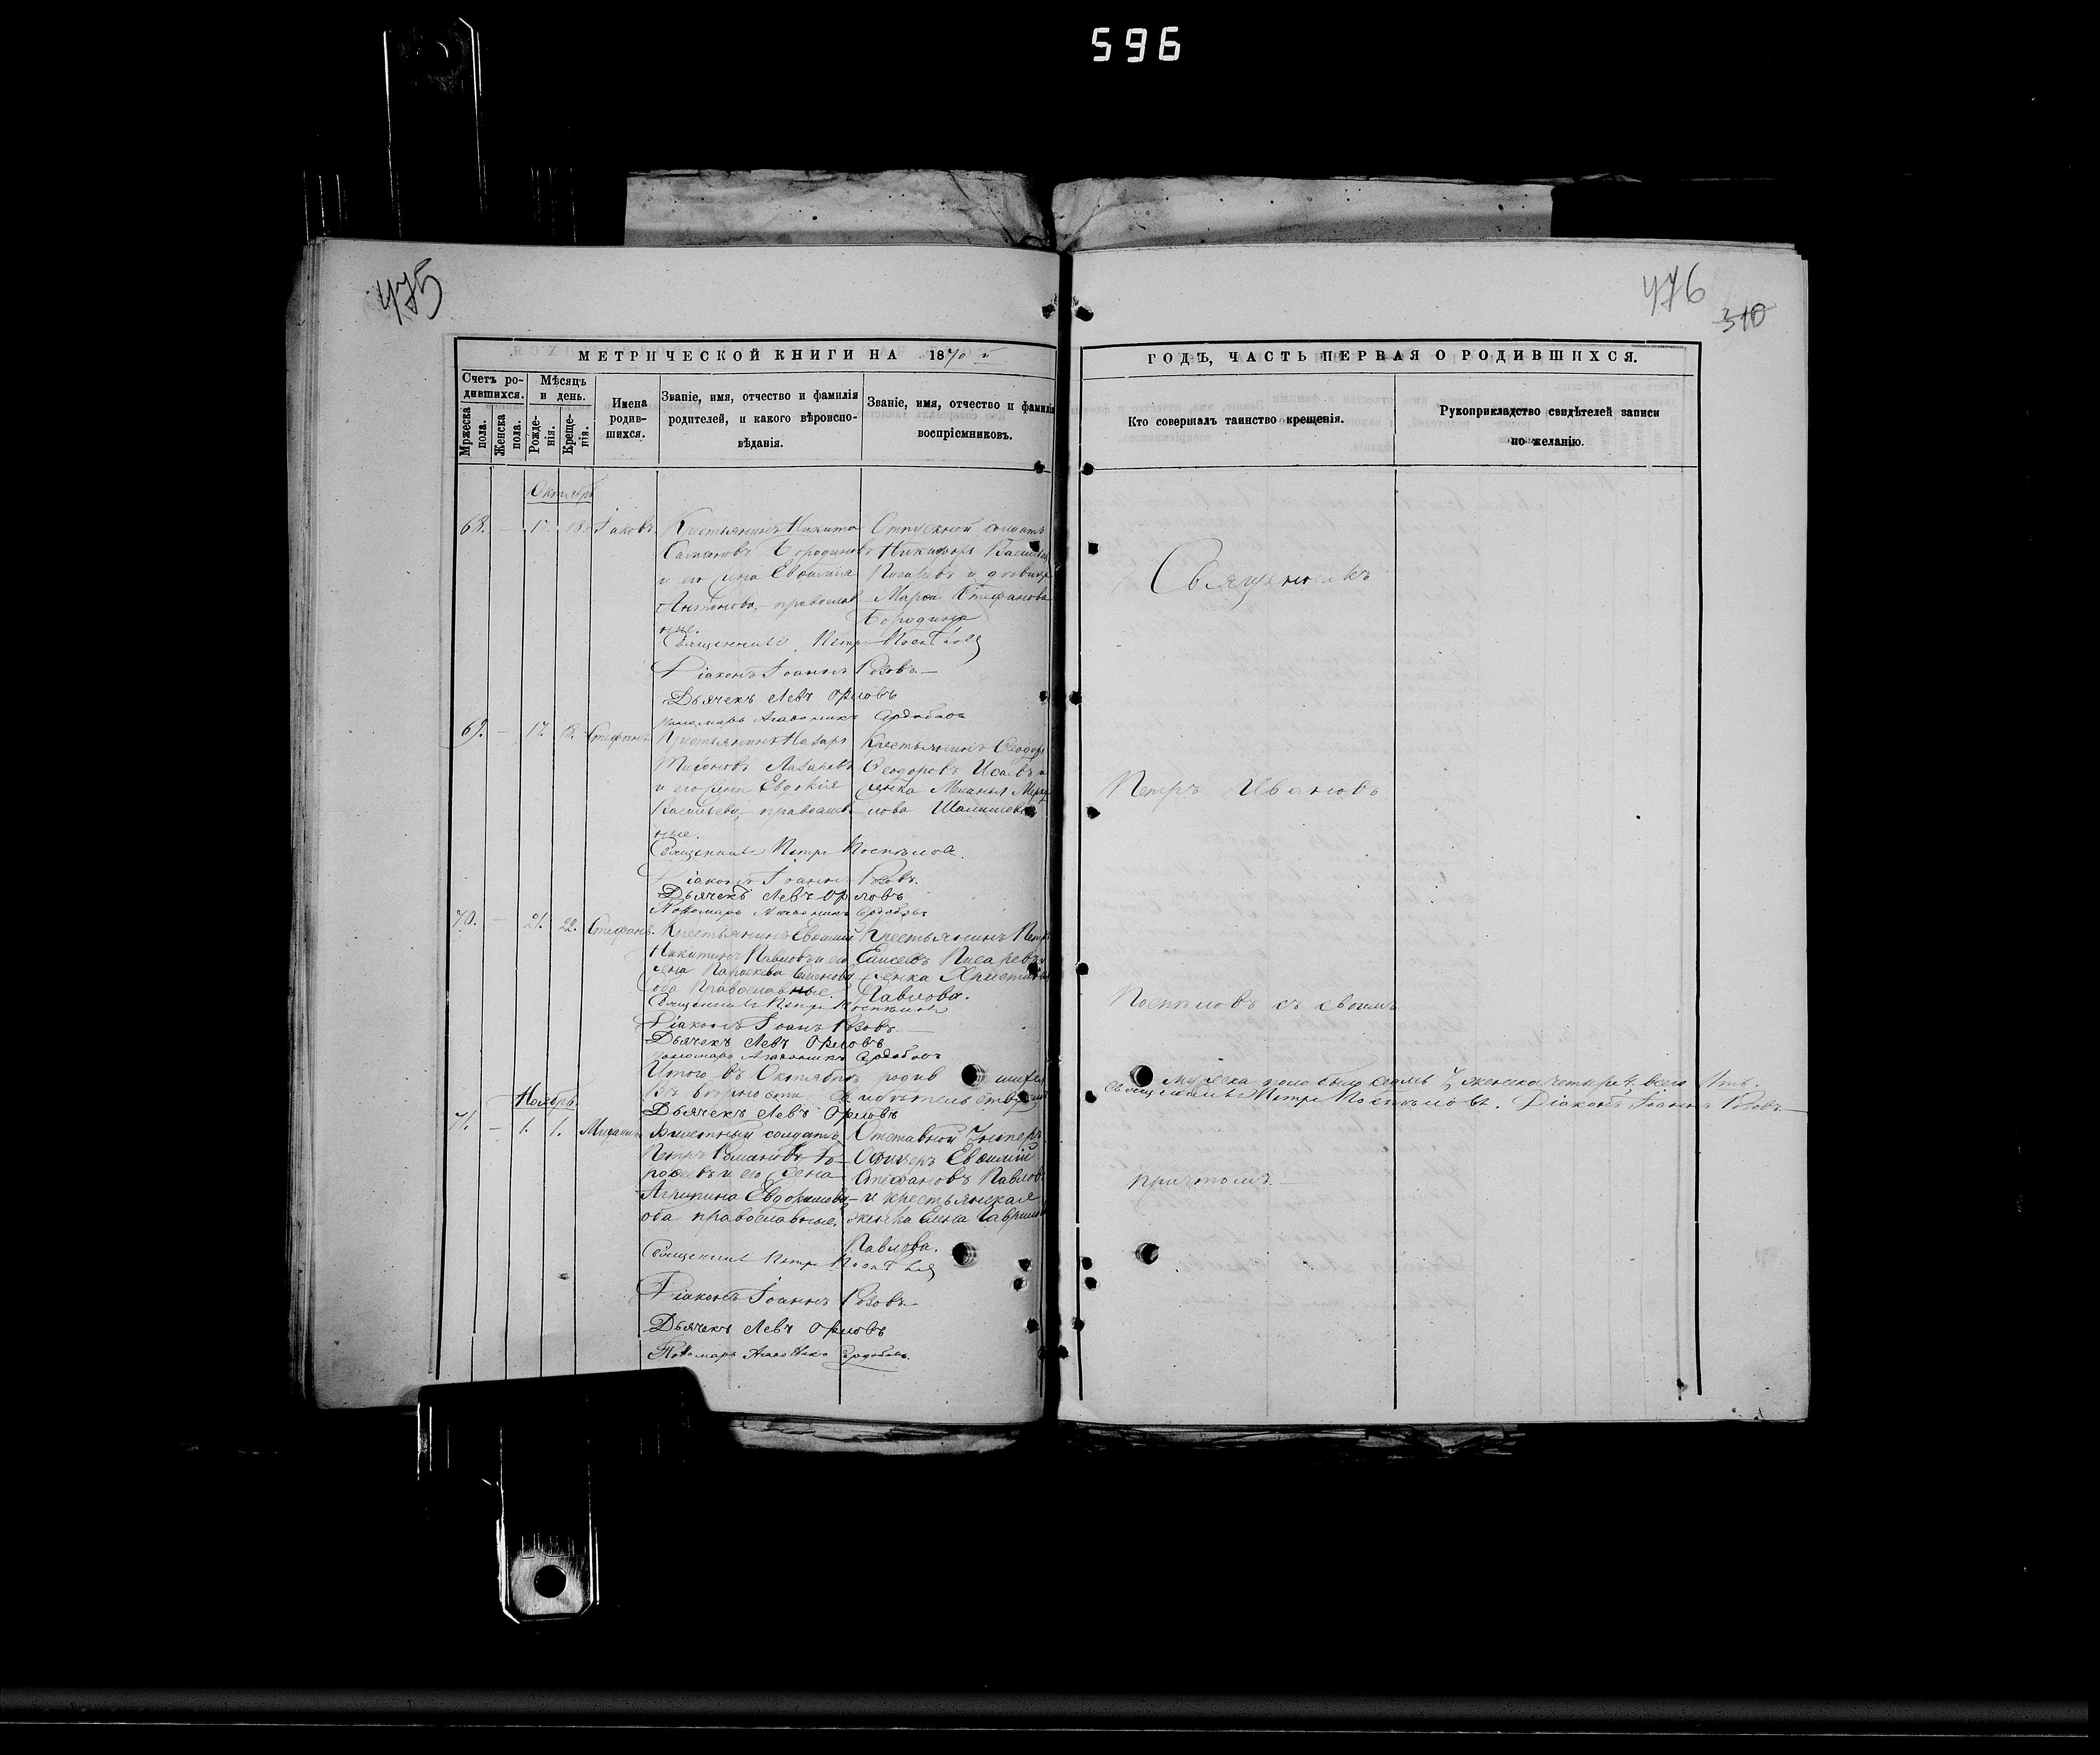 596
475
476
310
МЕТРИЧЕСКОЙ КНИГИ НА 1870 й
ГОДЪ, ЧАСТЬ ПЕРВАЯ О РОДИВШИХСЯ.
Счетъ родившихся.
Мужеска пола.
Женска пола.
Мѣсяцъ и день.
Рожденія.
Крещенія.
Имена родившихся.
Званіе, имя, отчество и фамилія родителей, и какого вѣроисповѣданія.
Званіе, имя, отчество и фамилія воспріемниковъ.
Кто совершалъ таинство крещенія.
Рукоприкладство свидѣтелей записи по желанію.
Октябрь
68. – 17. 18. Іаковъ
Крестьянинъ Никита
Бородиновъ
и его жена Евѳимія
Антонова, православ
ные.
Отпускной солдатъ
Никифоръ
Писаревъ и
Марѳа Стефанова
Бородина
Священникъ Петръ Поспѣловъ
Діаконъ Іоаннъ Розовъ
Дьячекъ Левъ Орловъ
Пономарь
69. – 17. 18. Стефанъ
Крестьянинъ Назаръ
Лазаревъ
и его жена Евдокія
Васильева, православ
ные.
Крестьянинъ Ѳеодоръ
Ѳеодоровъ Исаевъ и
женка Меланья
Священникъ Петръ Поспѣловъ
Діаконъ Іоаннъ Розовъ.
Дьячекъ Левъ Орловъ
Пономарь
70. – 21. 22. Стефанъ
Крестьянинъ Евѳимій
Никитинъ Павловъ и его
жена Параскева Семенова
оба православные.
Крестьянинъ Петръ
Елисеевъ Писаревъ и
женка
Павлова.
Священникъ Петръ Поспѣловъ
Діаконъ Іоаннъ Розовъ
Дьячекъ Левъ Орловъ
Пономарь
Итого въ Октябрѣ родившихся
мужеска пола было семь 7, женска четыре 4. всего 11ть.
Въ вѣрности
Священникъ Петръ Поспѣловъ. Діаконъ Іоаннъ Розовъ
Дьячекъ Левъ Орловъ
Ноябрь.
71. – 1. 1. Михаилъ
Билетный солдатъ
Петръ Романовъ
и его жена
Агрипина Евдокимова
оба православные.
Отставной Унтеръ
Офицеръ Евѳимій
Стефановъ Павловъ
и крестьянская
женка Елена Гаврилова
Павлова.
Священникъ Петръ Поспѣловъ
Діаконъ Іоаннъ Розовъ
Дьячекъ Левъ Орловъ
Пономарь
Священникъ
Петръ Ивановъ
Поспѣловъ съ своимъ
причтомъ.